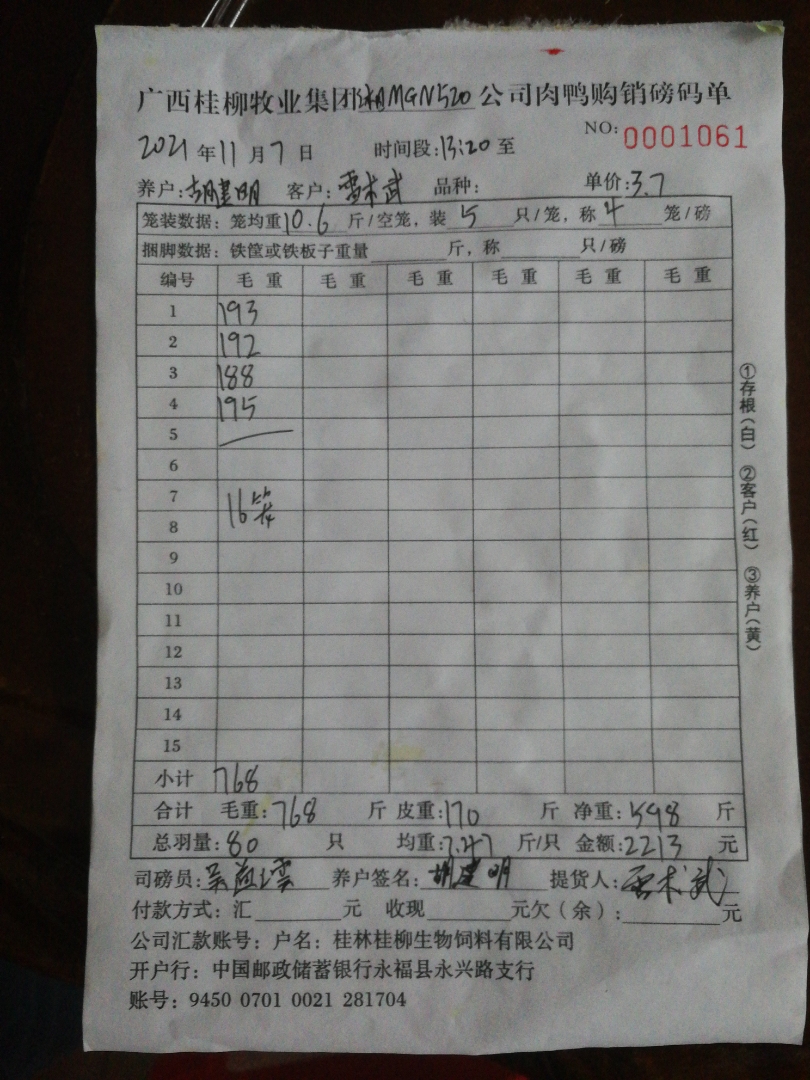 广西桂柳牧业集团湘MGN520公司肉鸭购销磅码单
NO:0001061
2021年11月7日 时间段:13:20至
养户:胡建明 客户: 品种: 单价:3.7
笼装数据:笼均重10.6斤/空笼,装5只/笼,称4笼/磅
捆脚数据:铁筐或铁板子重量 斤,称 只/磅
编号 毛重 毛重 毛重 毛重 毛重 毛重
1 193
2 192
3 188
4 195
5
6
7
16笼
8
9
10
11
12
13
14
15
小计 768
合计 毛重:768 斤 皮重:170 斤 净重:598 斤
总羽量:80 只 均重:7.47 斤/只 金额:2213 元
司磅员: 养户签名:胡建明 提货人:
付款方式:汇 元 收现 元欠(余): 元
公司汇款账号:户名:桂林桂柳生物饲料有限公司
开户行:中国邮政储蓄银行永福县永兴路支行
账号:9450 0701 0021 281704
①存根(白) ②客户(红) ③养户(黄)